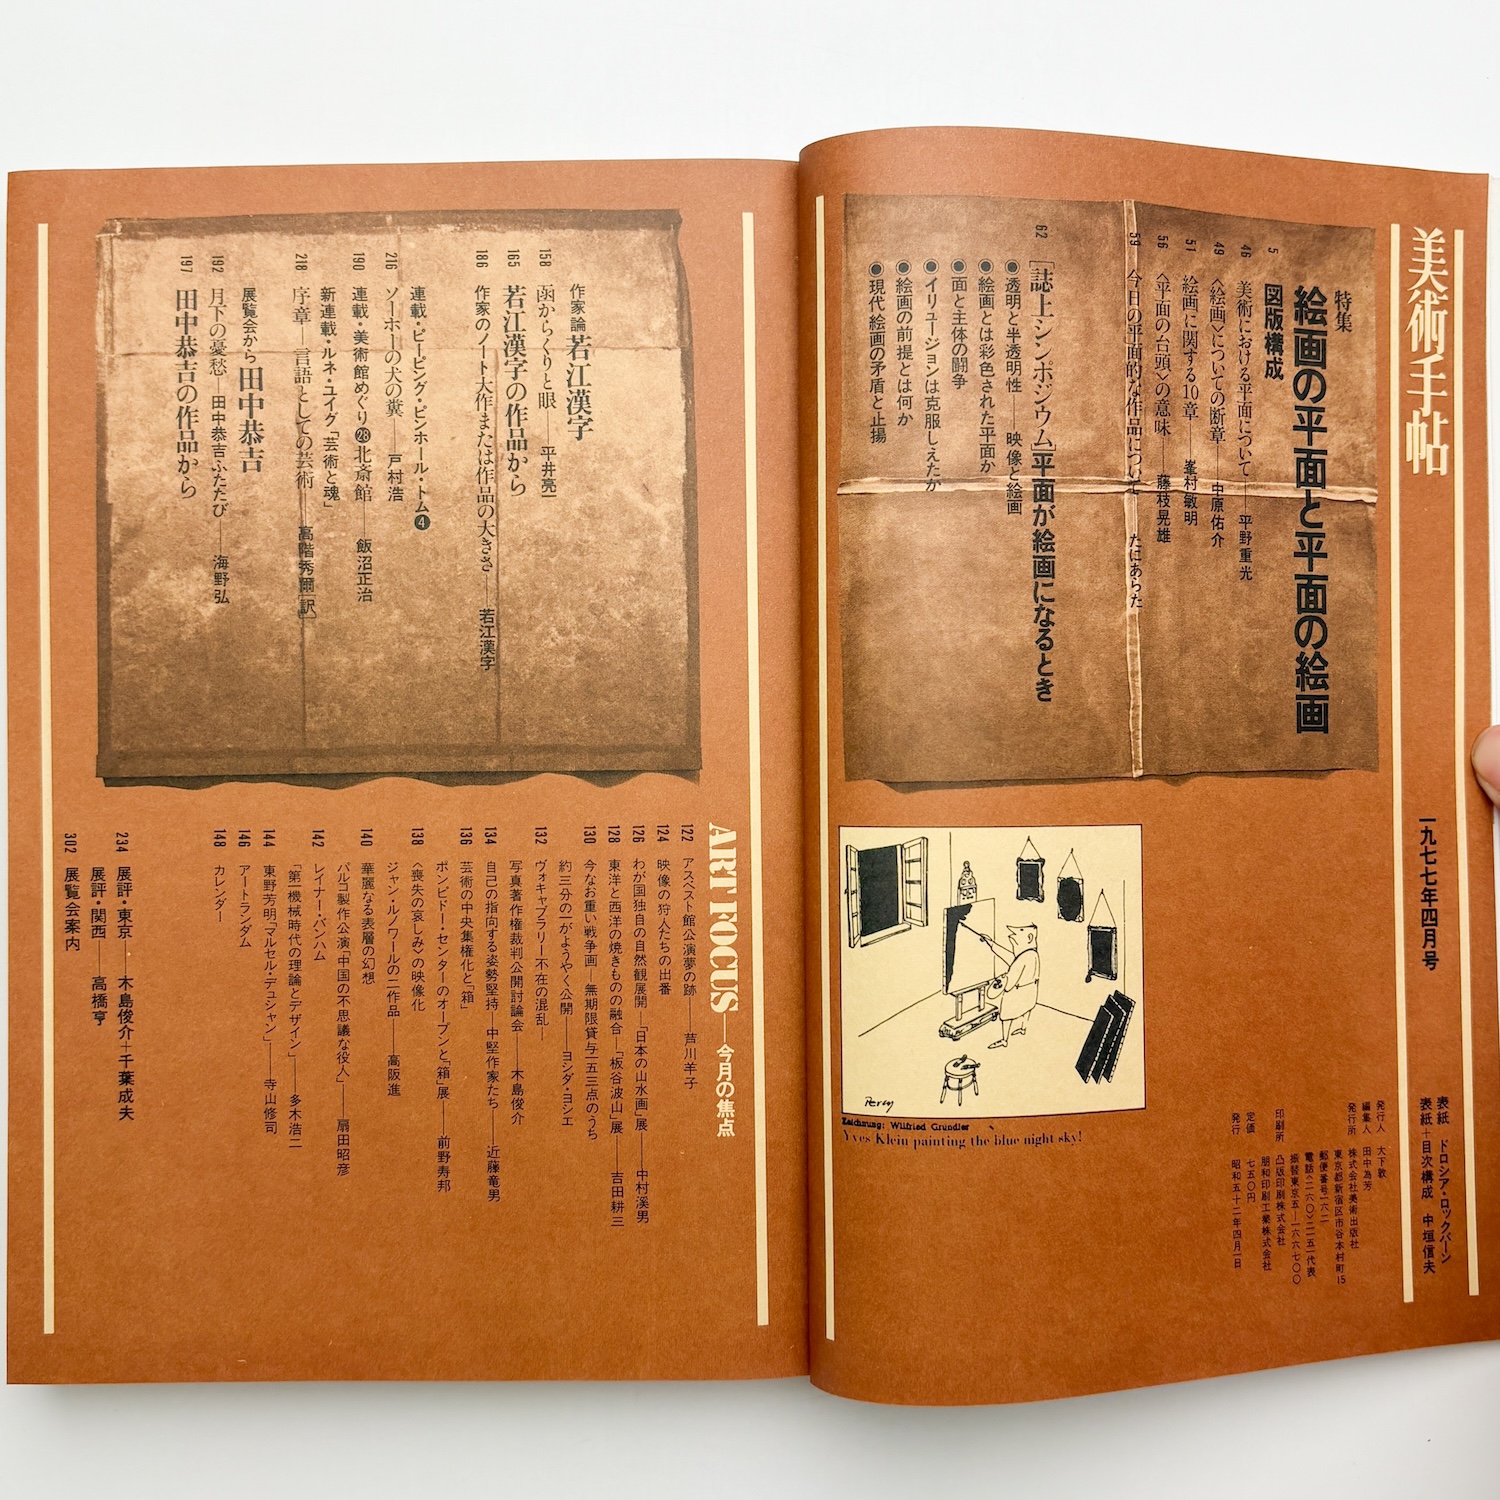 美術手帖
一九七七年四月号
表紙 ドロシア・ロックバーン
表紙＋目次構成 中垣信夫
特集
絵画の平面と平面の絵画
5 図版構成
46 美術における平面について——平野重光
49 〈絵画〉についての断章——中原佑介
51 絵画に関する10章——峯村敏明
56 〈平面の台頭〉の意味——藤枝晃雄
59 今日の平面的な作品について——たにあらた
62 [誌上シンポジウム]平面が絵画になるとき
●透明と半透明性——映像と絵画
●絵画とは彩色された平面か
●面と主体の闘争
●イリュージョンは克服しえたか
●絵画の前提とは何か
●現代絵画の矛盾と止揚
Percy
Zeichnung: Wilfried Grundler
Yves Klein painting the blue night sky!
発行人 大下敦
編集人 田中為芳
発行所 株式会社美術出版社
東京都新宿区市谷本村町15
郵便番号一六二
電話〈二六〇〉二一五一代表
振替東京五—一六六七〇〇
印刷所 凸版印刷株式会社
朋和印刷工業株式会社
定価 七五〇円
発行 昭和五十二年四月一日
作家論 若江漢字
158 函からくりと眼——平井亮一
165 若江漢字の作品から
186 作家のノート 大作または作品の大きさ——若江漢字
連載・ピーピング・ピンホール・トム❹
216 ソーホーの犬の糞——戸村浩
190 連載・美術館めぐり㉘北斎館——飯沼正治
新連載・ルネ・ユイグ「芸術と魂」
218 序章——言語としての芸術——高階秀爾[訳]
展覧会から 田中恭吉
192 月下の憂愁——田中恭吉ふたたび——海野弘
197 田中恭吉の作品から
ART FOCUS——今月の焦点
122 アスベスト館公演夢の跡——芦川羊子
124 映像の狩人たちの出番
126 わが国独自の自然観展開—「日本の山水画」展——中村溪男
128 東洋と西洋の焼きものの融合—「板谷波山」展——吉田耕三
130 今なお重い戦争画—無期限貸与一五三点のうち
約三分の一がようやく公開——ヨシダ・ヨシエ
132 ヴォキャブラリー不在の混乱—
写真著作権裁判公開討論会——木島俊介
134 自己の指向する姿勢堅持—中堅作家たち——近藤竜男
136 芸術の中央集権化と「箱」
ポンピドー・センターのオープンと「箱」展——前野寿邦
138 〈喪失の哀しみ〉の映像化
ジャン・ルノワールの二作品——高阪進
140 華麗なる表層の幻想
パルコ製作公演「中国の不思議な役人」——扇田昭彦
142 レイナー・バンハム
「第一機械時代の理論とデザイン」——多木浩二
144 東野芳明「マルセル・デュシャン」——寺山修司
146 アートランダム
148 カレンダー
234 展評・東京——木島俊介＋千葉成夫
展評・関西——高橋亨
302 展覧会案内